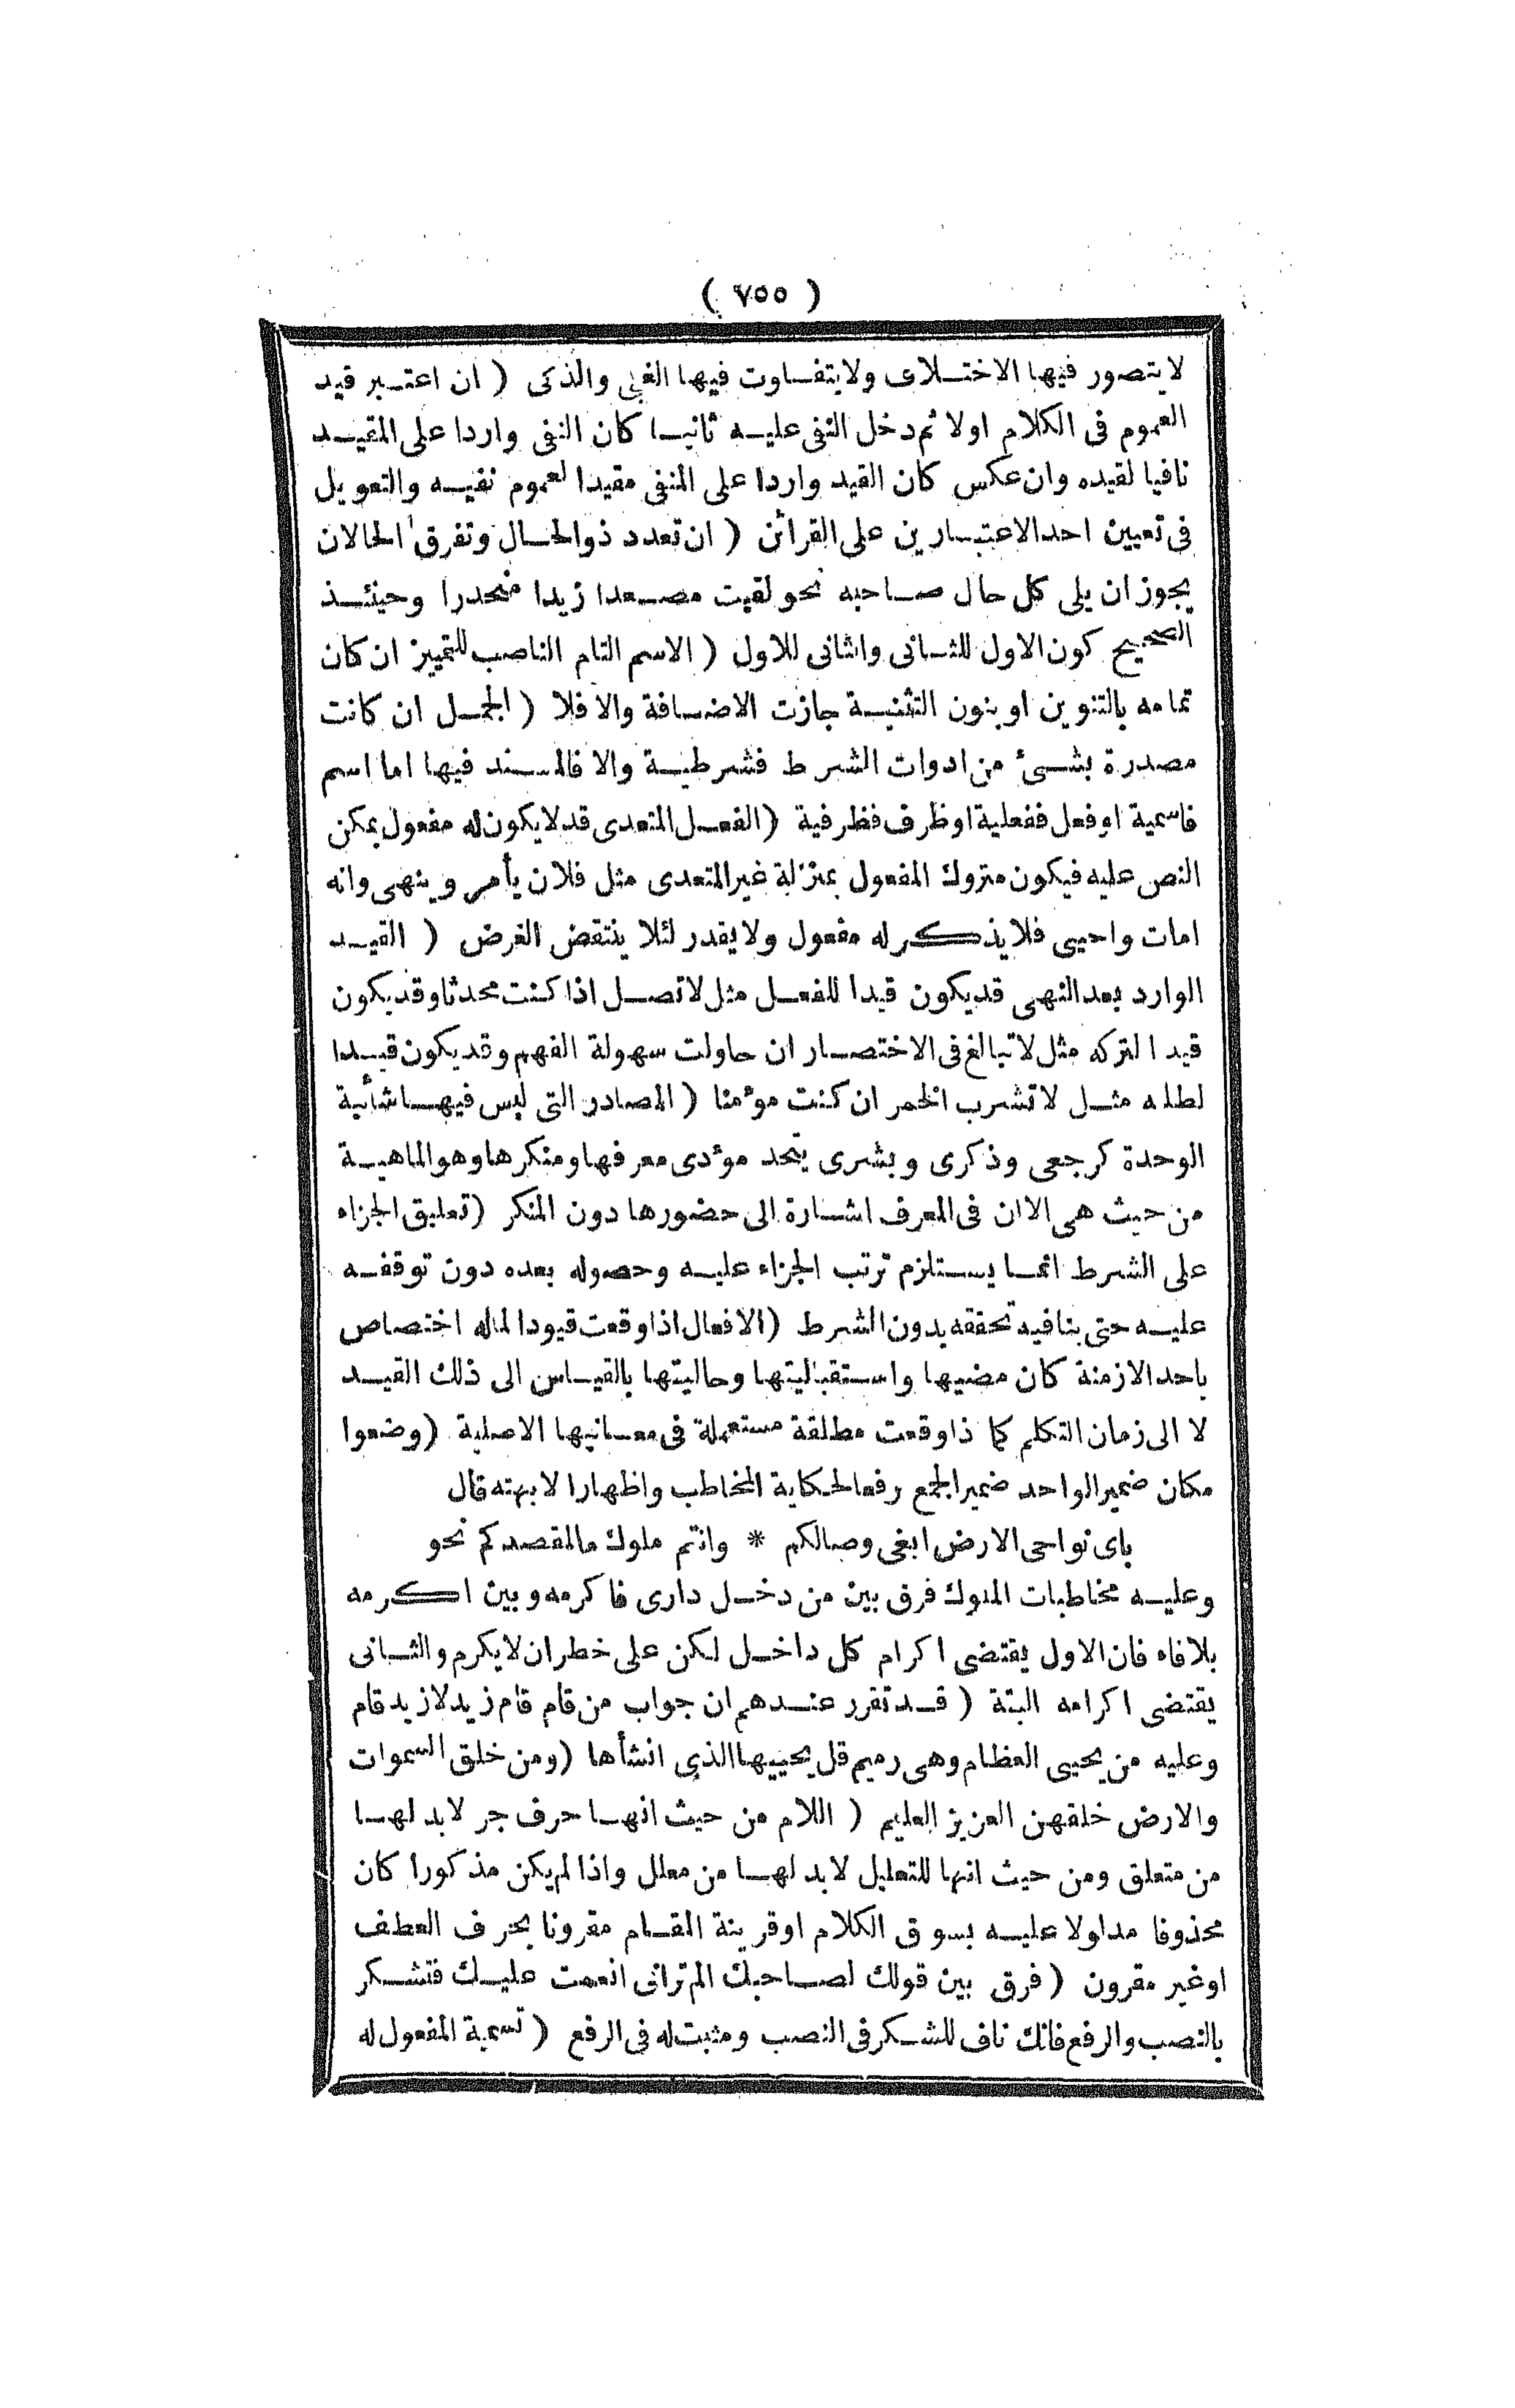 ( ٧٥٥ )
لا يتصور فيها الاختلاف ولا يتفاوت فيها الغبى والذكى ( ان اعتبر قيد
العموم فى الكلام اولا ثم دخل النفى عليه ثانيا كان النفى واردا على المقيد
نافيا لقيده وان عكس كان القيد واردا على المنفى مقيدا لعموم نفيه والتعويل
فى تعيين احد الاعتبارين على القرائن ( ان تعدد ذو الحال وتفرق الحالان
يجوز ان يلى كل حال صاحبه نحو لقيت مصعدا زيدا منحدرا وحينئذ
الصحيح كون الاول للثانى والثانى للاول ( الاسم التام الناصب للتمييز ان كان
تمامه بالتنوين او بنون التثنية جازت الاضافة والا فلا ( الجمل ان كانت
مصدرة بشئ من ادوات الشرط فشرطية والا فالمسند فيها اما اسم
فاسمية او فعل ففعلية او ظرف فظرفية ( الفعل المتعدى قد لا يكون له مفعول يمكن
النص عليه فيكون متروك المفعول بمنزلة غير المتعدى مثل فلان يأمر وينهى وانه
امات واحيى فلا يذكر له مفعول ولا يقدر لئلا ينتقض الغرض ( القيد
الوارد بعد النهى قد يكون قيدا للفعل مثل لا تصل اذا كنت محدثا وقد يكون
قيدا لتركه مثل لا تبالغ فى الاختصار ان حاولت سهولة الفهم وقد يكون قيدا
لطلبه مثل لا تشرب الخمر ان كنت مؤمنا ( المصادر التى ليس فيها شائبة
الوحدة كرجعى وذكرى وبشرى يتحد مؤدى معرفها ومنكرها وهو الماهية
من حيث هى الا ان فى المعرف اشارة الى حضورها دون المنكر ( تعليق الجزاء
على الشرط انما يستلزم ترتب الجزاء عليه وحصوله بعده دون توقفه
عليه حتى ينافيه تحققه بدون الشرط ( الافعال اذا وقعت قيودا لما له اختصاص
باحد الازمنة كان مضيها واستقباليتها وحاليتها بالقياس الى ذلك القيد
لا الى زمان التكلم كما ذا وقعت مطلقة مستعملة فى معانيها الاصلية ( وضعوا
مكان ضمير الواحد ضمير الجمع رفعا لحكاية المخاطب واظهارا لابهته قال
باى نواحى الارض ابغى وصالكم * وانتم ملوك ما لمقصدكم نحو
وعليه مخاطبات الملوك فرق بين من دخل دارى فاكرمه وبين اكرمه
بلا فاء فان الاول يقتضى اكرام كل داخل لكن على خطر ان لا يكرم والثانى
يقتضى اكرامه البتة ( قد تقرر عندهم ان جواب من قام قام زيد لا زيد قام
وعليه من يحيى العظام وهى رميم قل يحييها الذى انشأها ( ومن خلق السموات
والارض خلقهن العزيز العليم ( اللام من حيث انها حرف جر لا بد لها
من متعلق ومن حيث انها للتعليل لا بد لها من معلل واذا لم يكن مذكورا كان
محذوفا مدلولا عليه بسوق الكلام او قرينة المقام مقرونا بحرف العطف
او غير مقرون ( فرق بين قولك لصاحبك الم ترانى انعمت عليك فتشكر
بالنصب والرفع فانك ناف للشكر فى النصب ومثبت له فى الرفع ( تسمية المفعول له